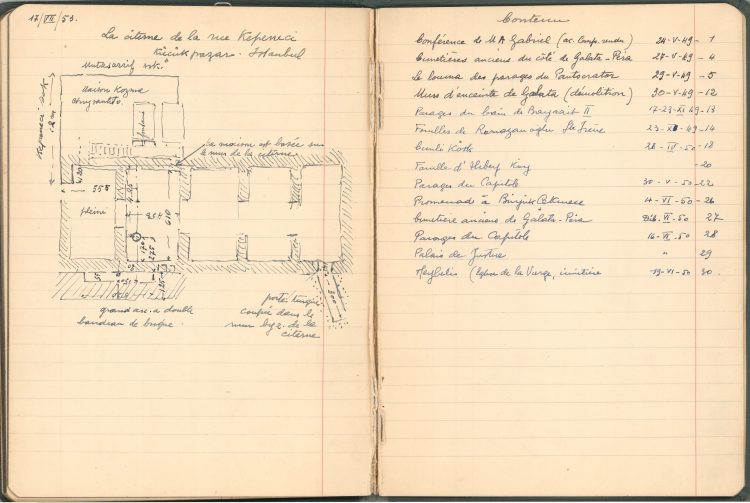 17/VII/53.
La citerne de la rue Kepeneci
Kücük pazar. Istanbul
Mutasarrif sok.
Kepeneci sok
Maison Kozma
fontaine
La maison est basée sur
le mur de la citerne
555
pleine
640
grand arc a double
bandeau de brique.
porte turque
coupée dans le
mur byz. de la
citerne
Contenu
Conférence de M A Gabriel (ac. Comp. rendu) 24-V-49-1
Cimetières anciens du côté de Galata-Péra 27-V-49-4
Le louma des parages du Pantocrator 29-V-49-5
Murs d'enceinte de Galata (démolition) 30-V-49-12
Parages du bain de Bayazit II 17-23-XI-49-13
Fouilles de Ramazanoglu Ste Irène 23-XII-49-14
Cinili Kösk 28-IV-50-18
Famille d' King -20
Parages du Capitole 30-V-50-22
Promenade à Büyük Cekmece 14-VI-50-26
Cimetière anciens de Galata-Péra VI-50 27
Parages du Capitole 16-VI-50 28
Palais de Justice " 29
(Eglise de la Vierge, cimetière 19-VI-50 30